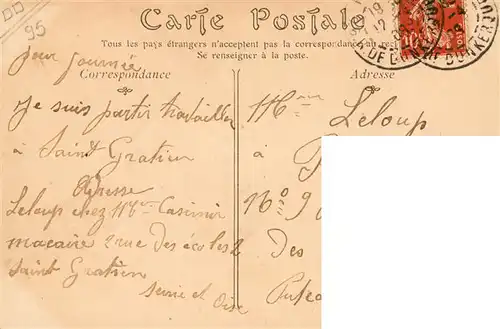 DD
95
Carte Postale
Tous les pays étrangers n'acceptent pas la correspondance au
Se renseigner à la poste.
Correspondance
Adresse
pour journée
Je suis partir travailler
à Saint Gratien
Adresse
Leloup chez Mr Casimir
macaire 2 rue des écoles 2
Saint Gratien
Seine et Oise
Leloup
à
No 9
Des